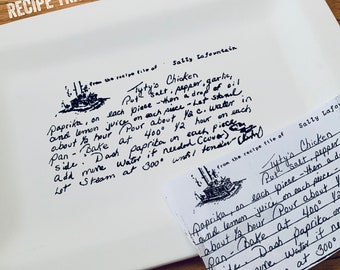 RECIPE TRA
from the recipe file of Sally Lafountain
Tyty's Chicken
Put Salt, pepper, garlic,
Paprika, on each piece - then a drop of oil
and lemon juice on each piece - Let Stand
about ½ hour Pour about ½ c. Water in
Pan - Bake at 400° ½ hour on each
side. Dash Paprika on each piece
add more Water if needed Cover
Let Steam at 300° until tender
from the recipe file of Sally
Tyty's Chicken
Put Salt, pepper
Paprika, on each piece - then a
and lemon juice on each piece
about ½ hour Pour about
Pan - Bake at 400° ½
side. Dash Paprika on
add more Water if
Let Steam at 300°